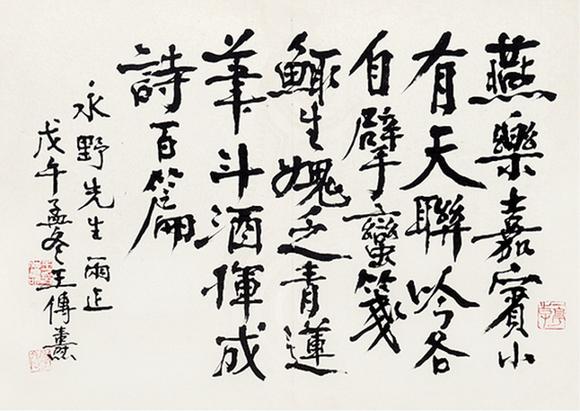 燕樂嘉賓小
有天聯吟各
自擘蠻箋
鯫生媿乏青蓮
筆斗酒揮成
詩百篇
永野先生兩正
戊午孟冬王傳燾